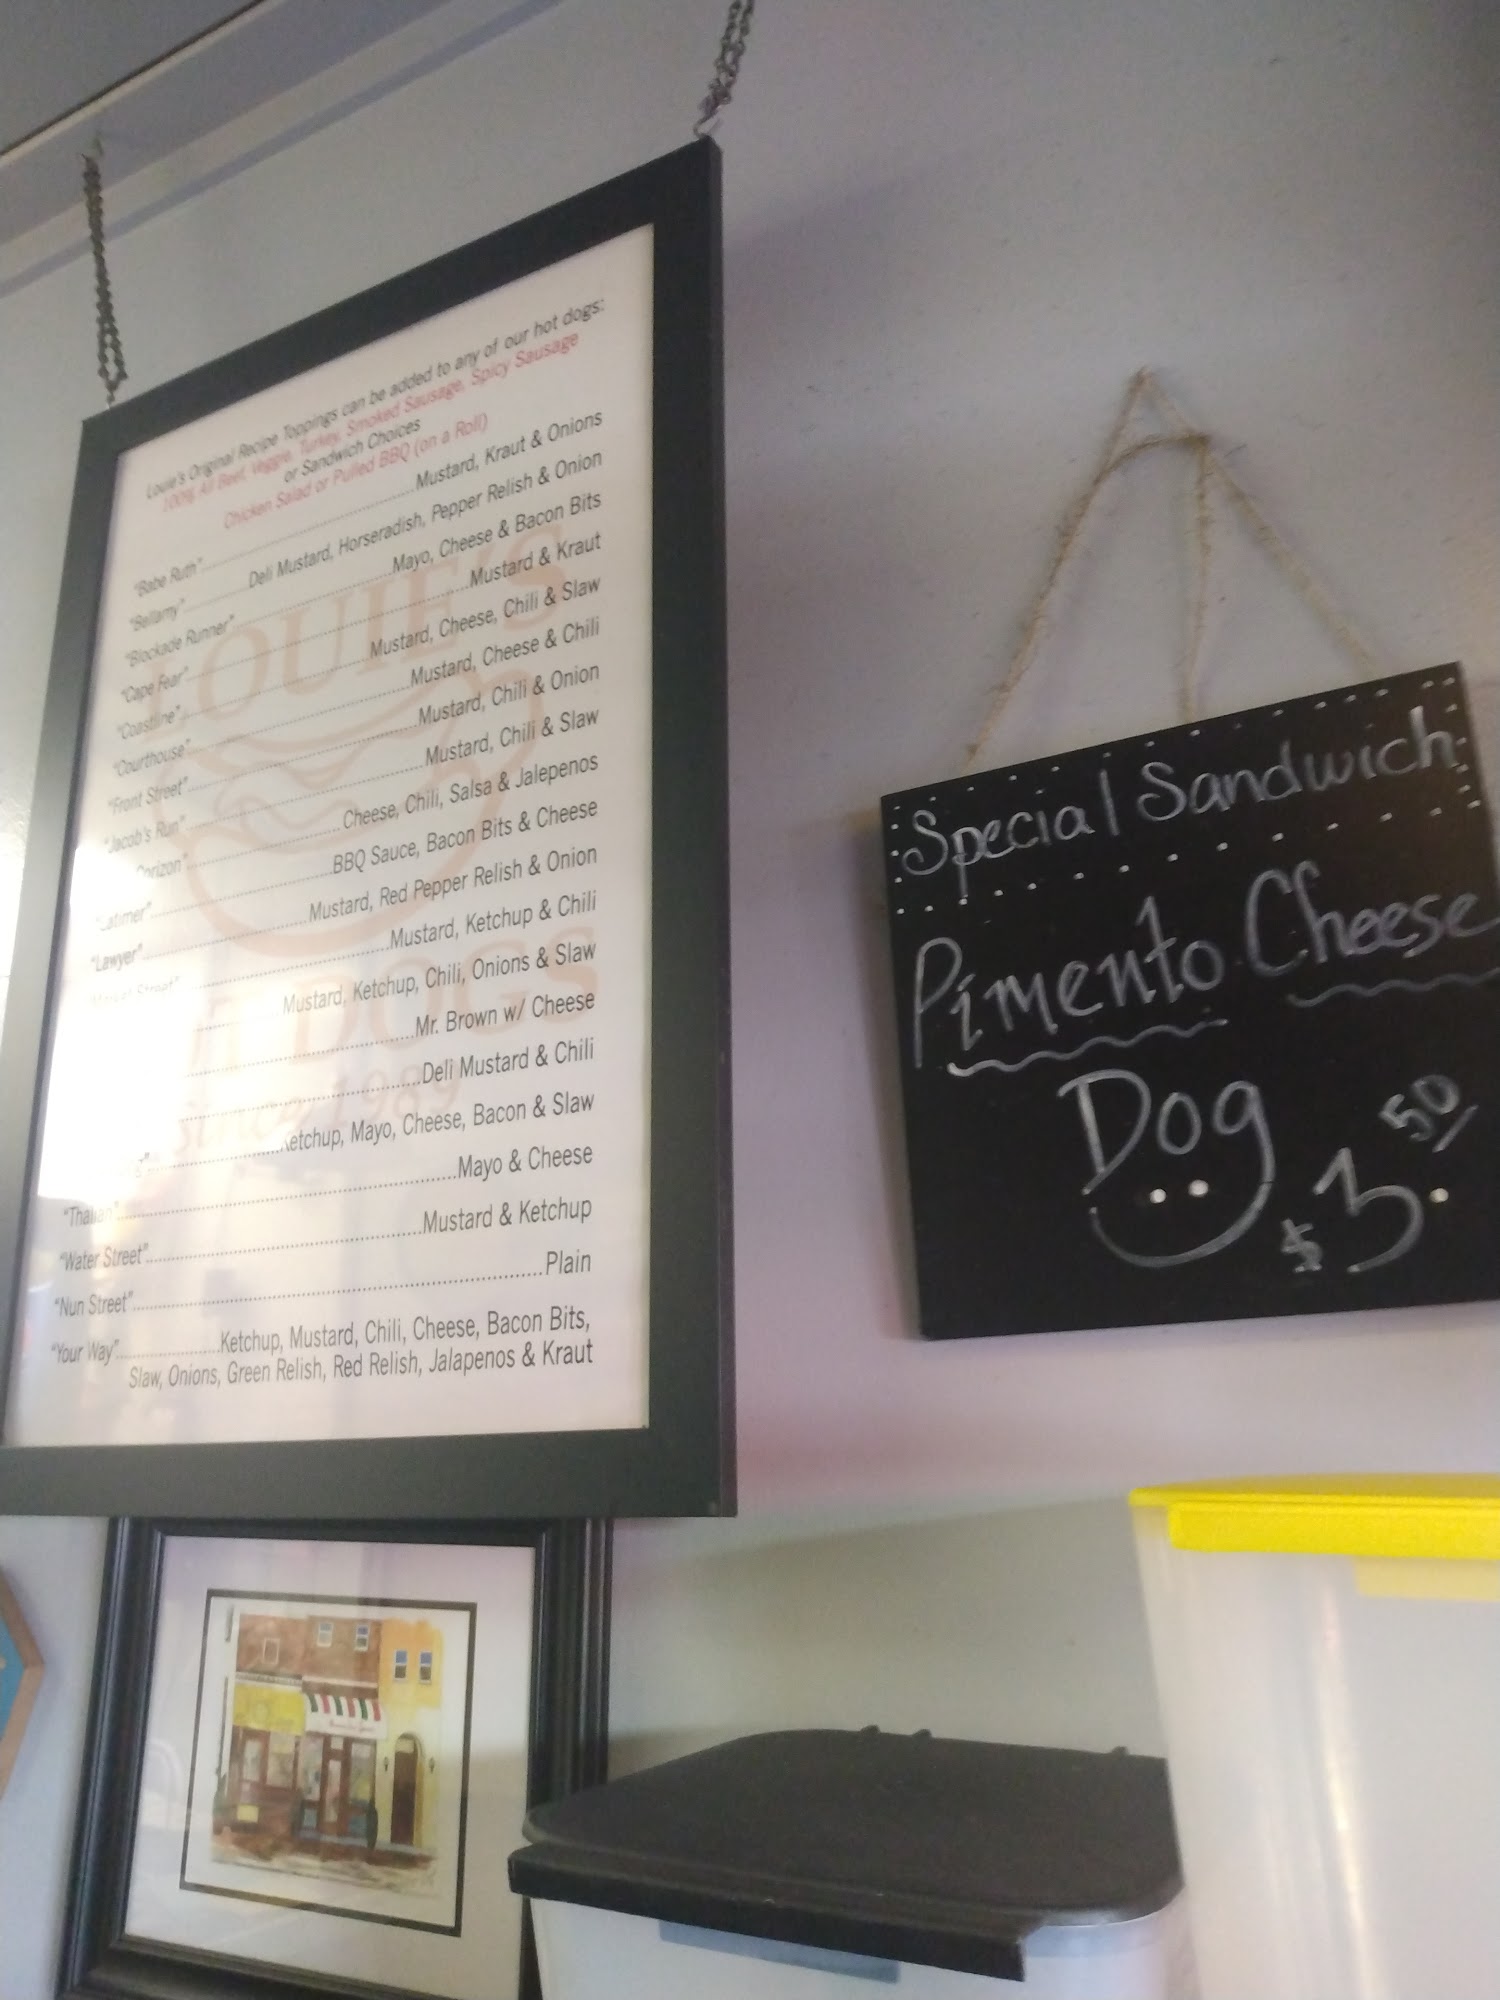 Louie's Original Recipe Toppings can be added to any of our hot dogs:
100% All Beef, Veggie, Turkey, Smoked Sausage, Spicy Sausage
or Sandwich Choices
Chicken Salad or Pulled BBQ (on a Roll)
"Babe Ruth" Mustard, Kraut & Onions
"Bellamy" Deli Mustard, Horseradish, Pepper Relish & Onion
"Blockade Runner" Mayo, Cheese & Bacon Bits
"Cape Fear" Mustard & Kraut
"Coastline" Mustard, Cheese, Chili & Slaw
"Courthouse" Mustard, Cheese & Chili
"Front Street" Mustard, Chili & Onion
"Jacob's Run" Mustard, Chili & Slaw
Corizon" Cheese, Chili, Salsa & Jalepenos
"Latimer" BBQ Sauce, Bacon Bits & Cheese
"Lawyer" Mustard, Red Pepper Relish & Onion
Street" Mustard, Ketchup & Chili
Mustard, Ketchup, Chili, Onions & Slaw
Mr. Brown w/ Cheese
Deli Mustard & Chili
Ketchup, Mayo, Cheese, Bacon & Slaw
"Thalian" Mayo & Cheese
"Water Street" Mustard & Ketchup
"Nun Street" Plain
"Your Way" Ketchup, Mustard, Chili, Cheese, Bacon Bits,
Slaw, Onions, Green Relish, Red Relish, Jalapenos & Kraut
LOUIE'S
DOGS
since 1989
Special Sandwich
Pimento Cheese
Dog
$3.50